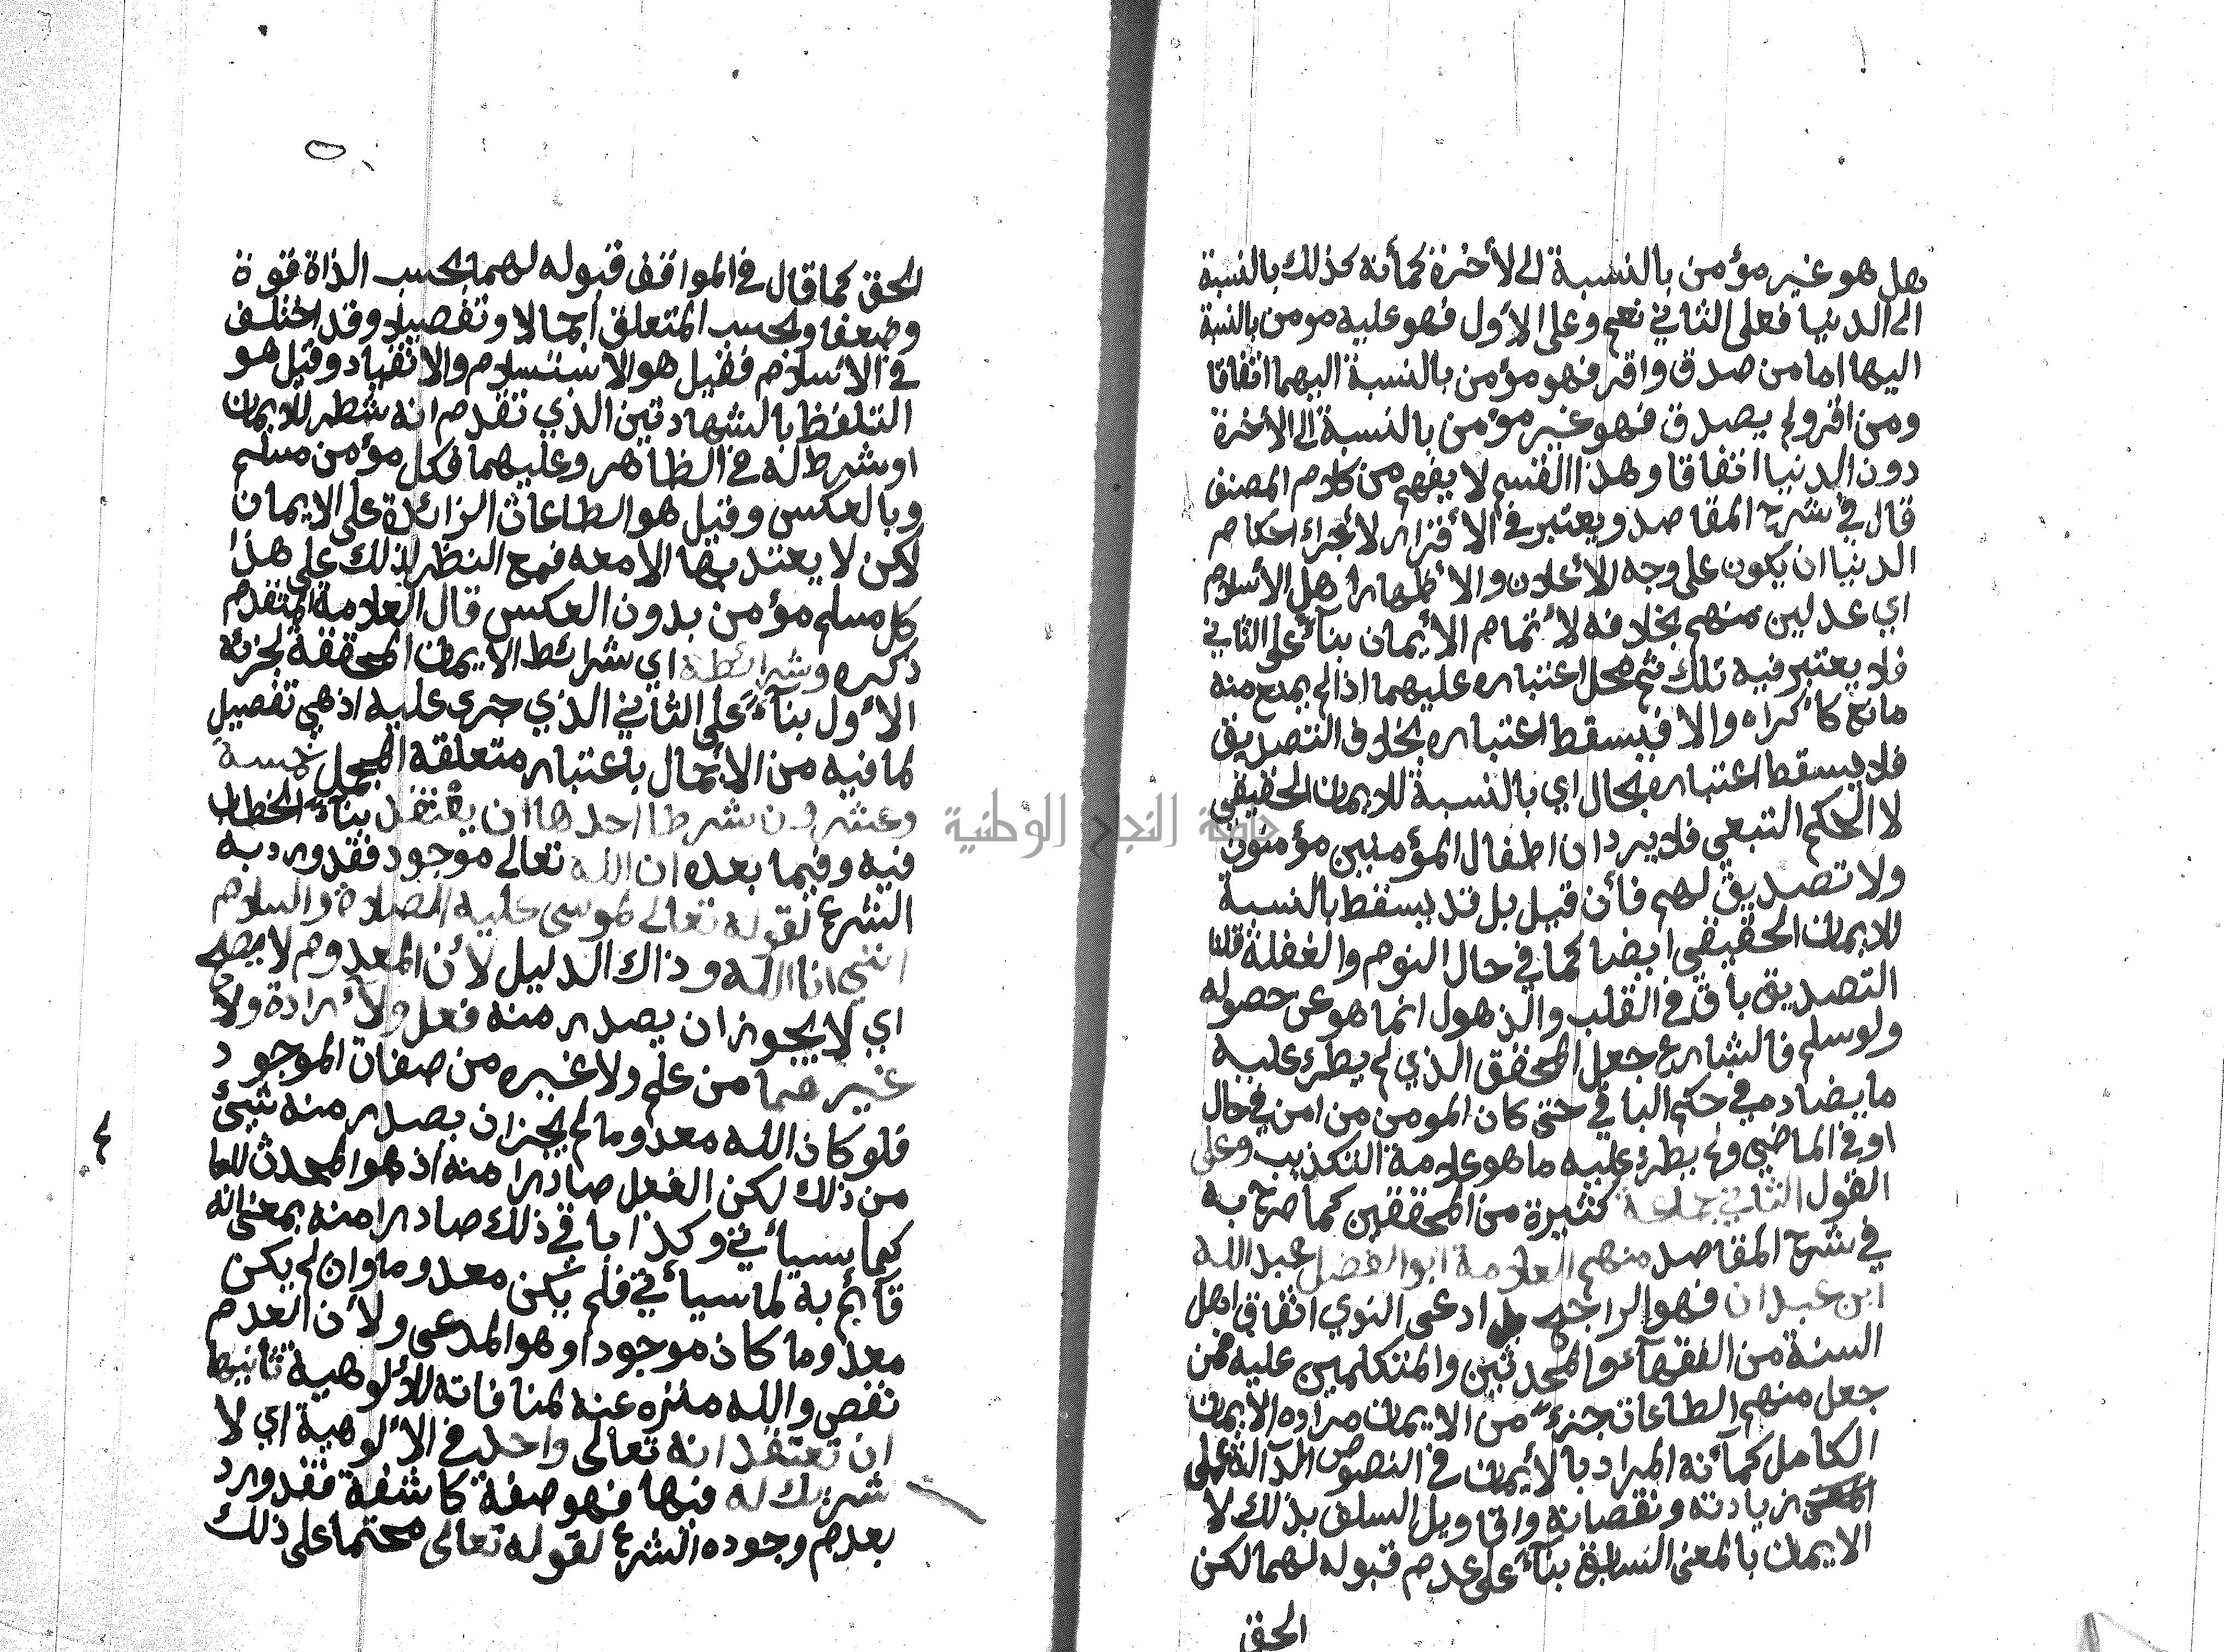 هل هو غير مؤمن بالنسبة الى لأخرة كمأنه كذلك بالنسبة
الى الدنيا فعلى الثاني نعم وعلى الأول فهو عليه مومن بالنسبة
اليها اما من صدق واقر فهو مؤمن بالنسبة اليهما اتفاقا
ومن اقر ولم يصدق فهو غير مؤمن بالنسبة الى الأخرة
دون الدنيا اتفاقا وهذا القسم لا يفهم من كلام المصنف
قال في شرح المقاصد ويعتبر في الأقرار لأجراء احكام
الدنيا ان يكون على وجه الأعلان والاظهار لأهل الأسلام
اي عدلين منهم بخلافه لأتمام الأيمان بنآء على الثاني
فلا يعتبر فيه تلك ثم محل اعتباره عليهما اذا لم يمنع منه
مانع كأكراه والا فيسقط اعتباره بخلاف التصديق
فلا يسقط اعتباره بحال اي بالنسبة للايمان الحقيقي
لا الحكم التبعي فلا يرد ان اطفال المؤمنين مؤمنون
ولا تصديق لهم فأن قيل بل قد يسقط بالنسبة
للايمان الحقيقي ايضا كما في حال النوم والغفلة قلنا
التصديق باق في القلب والذهول انما هو عن حصوله
ولو سلم فالشارع جعل المحقق الذي لم يطرء عليه
ما يضاده في حكم الباقي حتى كان المومن من امن في حال
او في الماضي ولم يطرء عليه ما هو علامة التكذيب وعلى
القول الثاني جماعة كثيرة من المحققين كما صرح به
في شرح المقاصد منهم العلامة ابو الفضل عبد الله
ابن عبدان فهو الراجح بل ادعى النوي اتفاق اهل
السنة من الفقهآء والمحدثين والمتكلمين عليه فمن
جعل منهم الطاعات جزء من الايمان مراده الايمان
الكامل كمآنه المراد بالأيمان في النصوص الدآلة على
زيادته ونقصانه واقاويل السلف بذلك لا
الايمان بالمعنى السابق بنآء على عدم قبوله لهما لكن
الحق
الحق كما قال في المواقف قبوله لهما بحسب الذاة قوة
وضعفا وبحسب المتعلق اجمالا وتفصيلا وقد اختلف
في الاسلام فقيل هو الاستسلام والانقياد وقيل هو
التلفظ بالشهادتين الذي تقدم انه شطر للايمان
او شرط له في الظاهر وعليهما فكل مؤمن مسلم
وبالعكس وقيل هو الطاعات الزائدة على الايمان
لاكن لا يعتد بها الا معه فمع النظر لذلك على هذا
كل مسلم مؤمن بدون العكس قال العلامة المتقدم
ذكره وشرائطه اي شرائط الايمان المحققة لجزئه
الأول بنآء على الثاني الذي جرى عليه اذ هي تفصيل
لما فيه من الأجمال باعتبار متعلقه المجمل خمسة
وعشرون شرطا احدها ان يعتقد بنآء الخطاب
فيه وفيما بعده ان الله تعالى موجود فقد ورد به
الشرع لقوله تعالى لموسى عليه الصلاة والسلام
انني انا الله وذاك الدليل لأن المعدوم لا يصلح
اي لا يجوز ان يصدر منه فعل ولا أرادة ولا
غيرهما من علم ولا غيره من صفات الموجود
فلو كان الله معدوما لم يجز ان يصدر منه شيئ
من ذلك لكن الفعل صادرا منه اذ هو المحدث للعا
لم
كما سيأتي وكذا باقي ذلك صادرا منه بمعنى انه
قائم به لما سيأتي فلم يكن معدوما وان لم يكن
معدوما كان موجودا وهو المدعى ولأن العدم
نقص والله منزه عنه لمنافاته للألوهية ثانيها
ان تعتقد انه تعالى واحد في الألوهية اي لا
شريك له فيها فهو صفة كاشفة فقد ورد
بعدم وجوده الشرع لقوله تعالى محتجا على ذلك
جامعة النجاح الوطنية